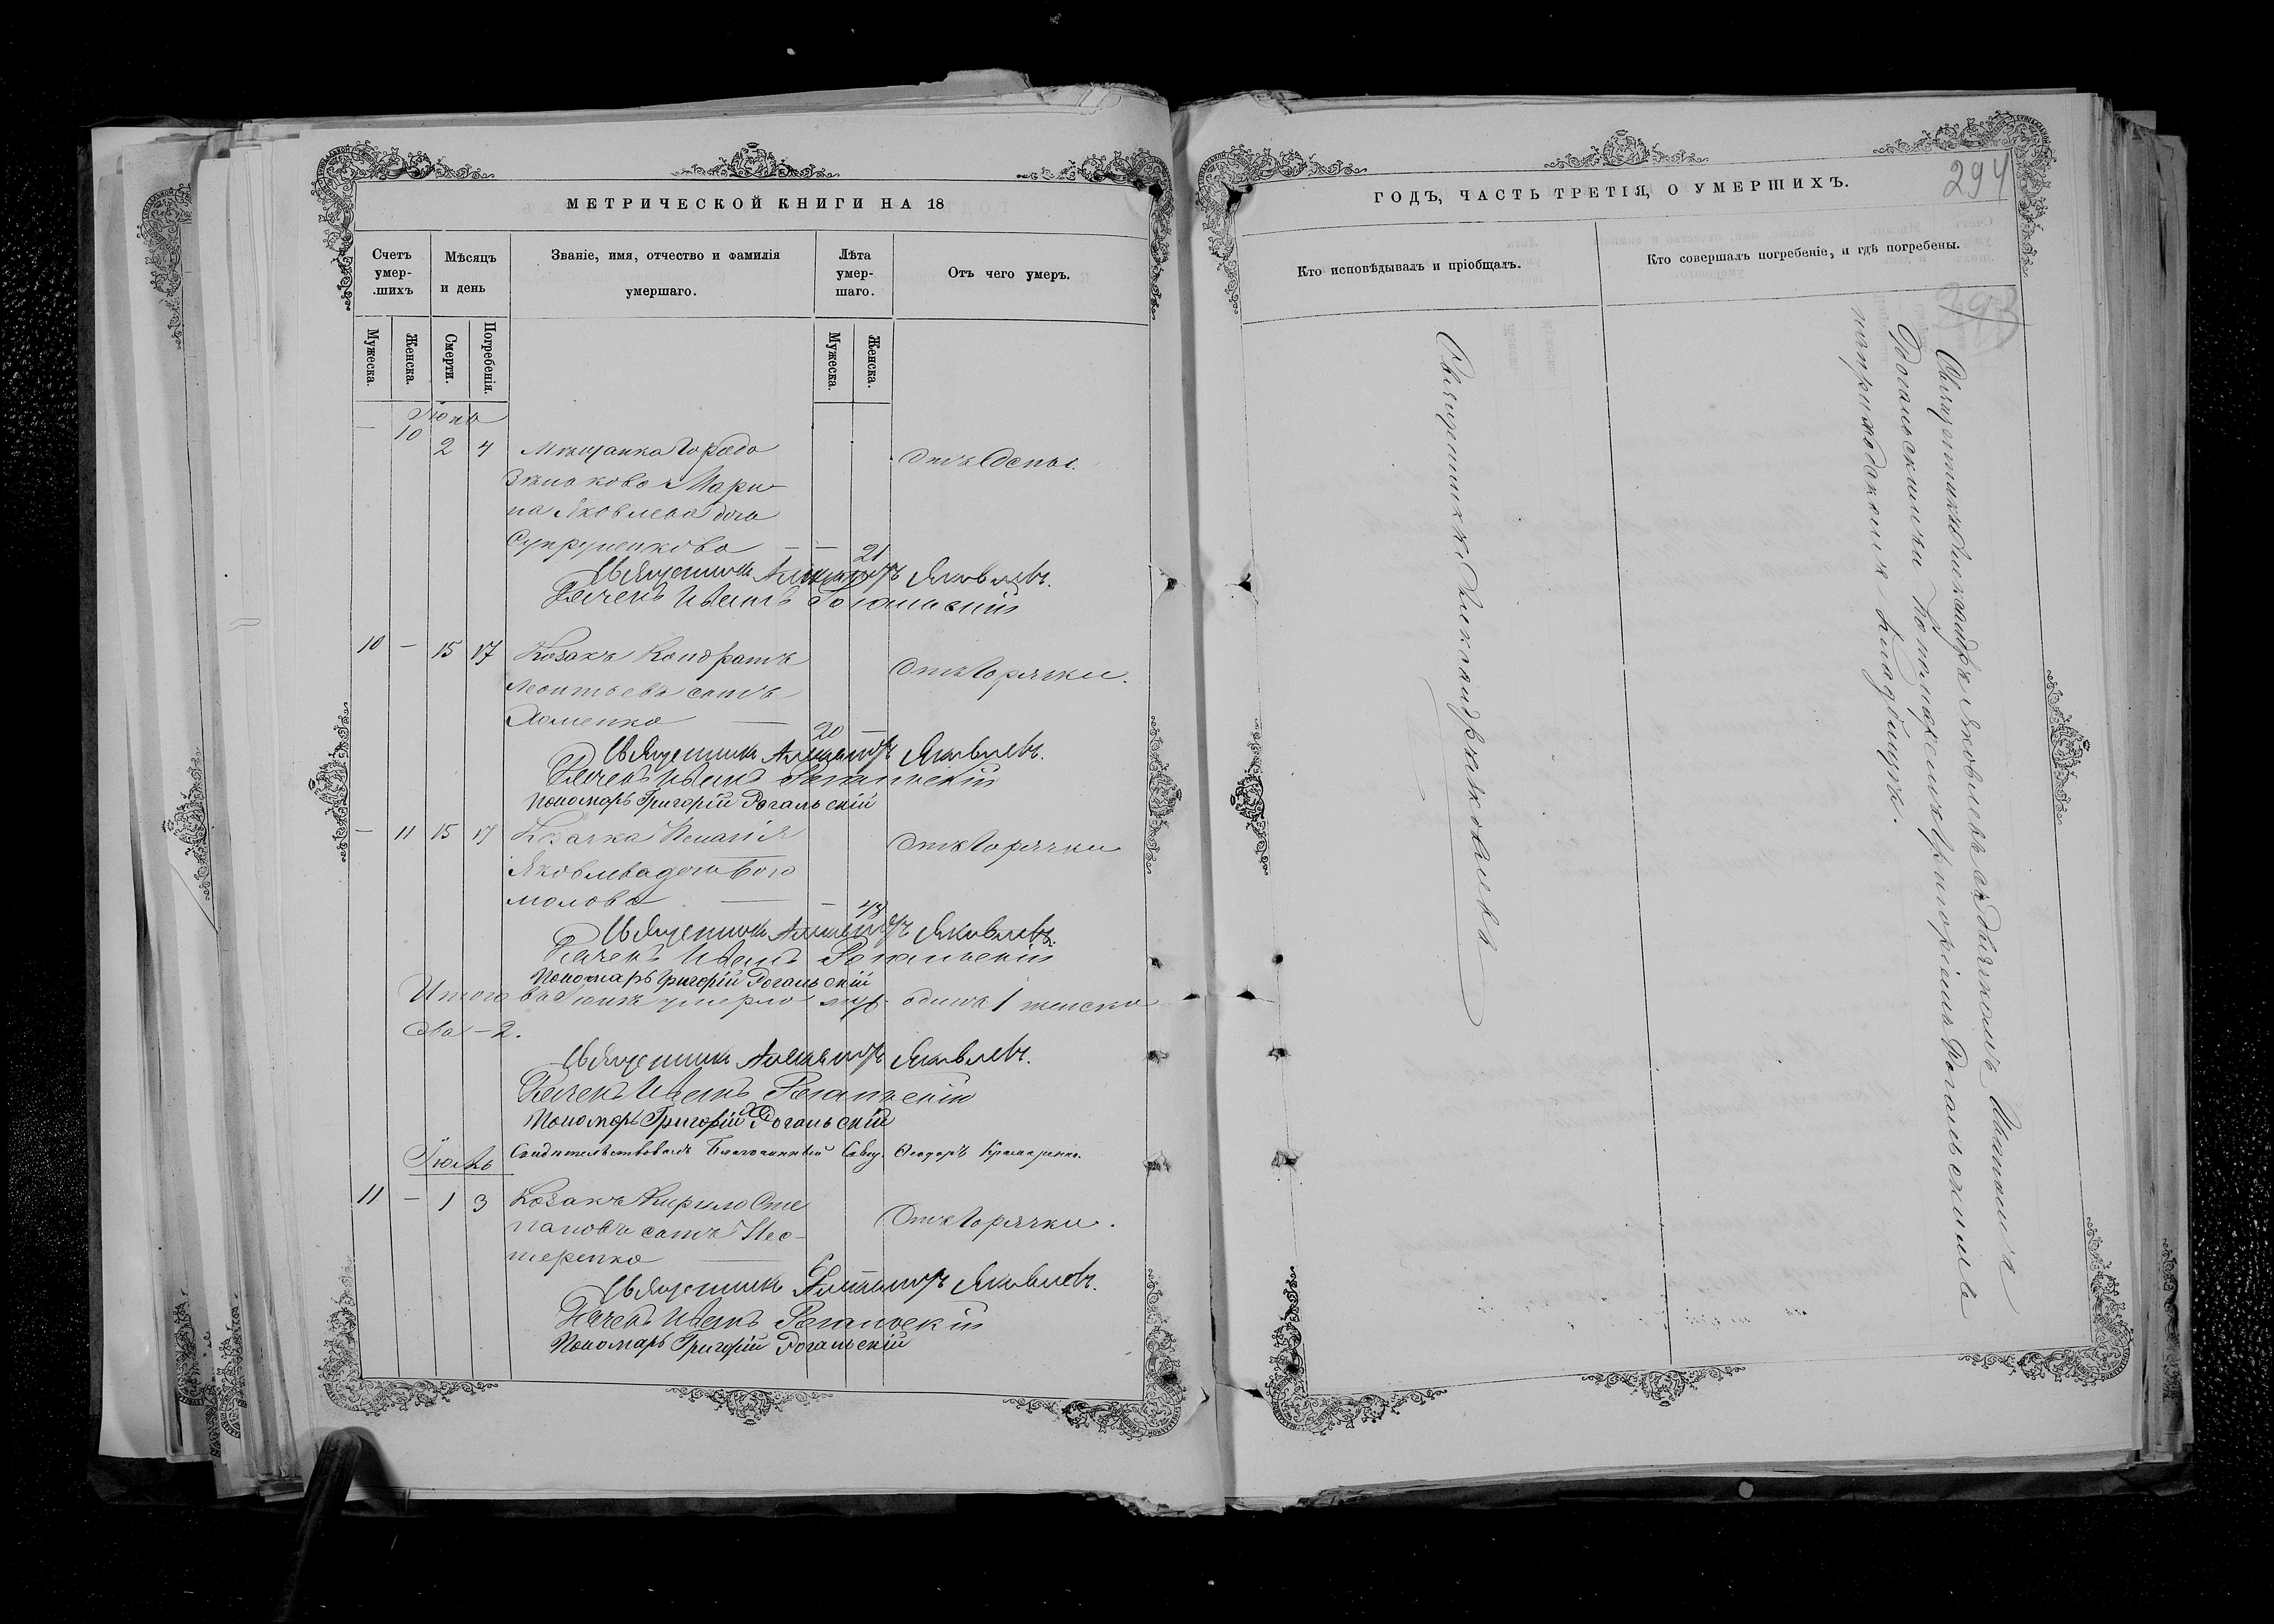 МЕТРИЧЕСКОЙ КНИГИ НА 18
Счетъ умер-.шихъ
Мѣсяцъ и день
Званіе, имя, отчество и фамилія умершаго.
Лѣта умер-шаго.
Отъ чего умеръ.
Мужеска.
Женска.
Смерти.
Погребенія.
Мужеска.
Женска.
Іюнь
— 10 2 4 Мѣщанка Города
Зѣнькова Мари-
на Яковлева дочь
Супруненкова — — 21
Отъ Оспы.
Священникъ Александръ Яковлевъ.
Дячекъ Иванъ Рогальскій
10 — 15 17 Козакъ Кондратъ
Леонтьевъ сынъ
Хоменко — 20 —
Отъ Горячки.
Священникъ Александръ Яковлевъ.
Дячекъ Иванъ Рогальскій
Пономарь Григорій Рогальскій
— 11 15 17 Козачка
Яковлева дочь Бого
молова — — 43
Отъ Горячки
Священникъ Александръ Яковлевъ.
Дячекъ Иванъ Рогальскій
Пономарь Григорій Рогальскій
Итого въ Іюнѣ умерло муж. одинъ 1 женска
два — 2.
Священникъ Александръ Яковлевъ.
Дячекъ Иванъ Рогальскій
Пономарь Григорій Рогальскій
Іюль
Свидѣтельствовалъ Благочинный Свящ. Ѳеодоръ Крамаренко.
11 — 1 3 Козакъ Кирило Сте
пановъ сынъ Нес-
теренко — 6 —
Отъ Горячки.
Священникъ Александръ Яковлевъ.
Дячекъ Иванъ Рогальскій
Пономарь Григорій Рогальскій
ГОДЪ, ЧАСТЬ ТРЕТІЯ, О УМЕРШИХЪ.
294
Кто исповѣдывалъ и пріобщалъ.
Кто совершалъ погребеніе, и гдѣ погребены.
293
Священникъ Александръ Яковлевъ
Священникъ Александръ Яковлевъ съ Дьячкомъ Иваномъ
Рогальскимъ и Пономаремъ Григоріемъ Рогальскимъ
на приходскомъ кладбищѣ.